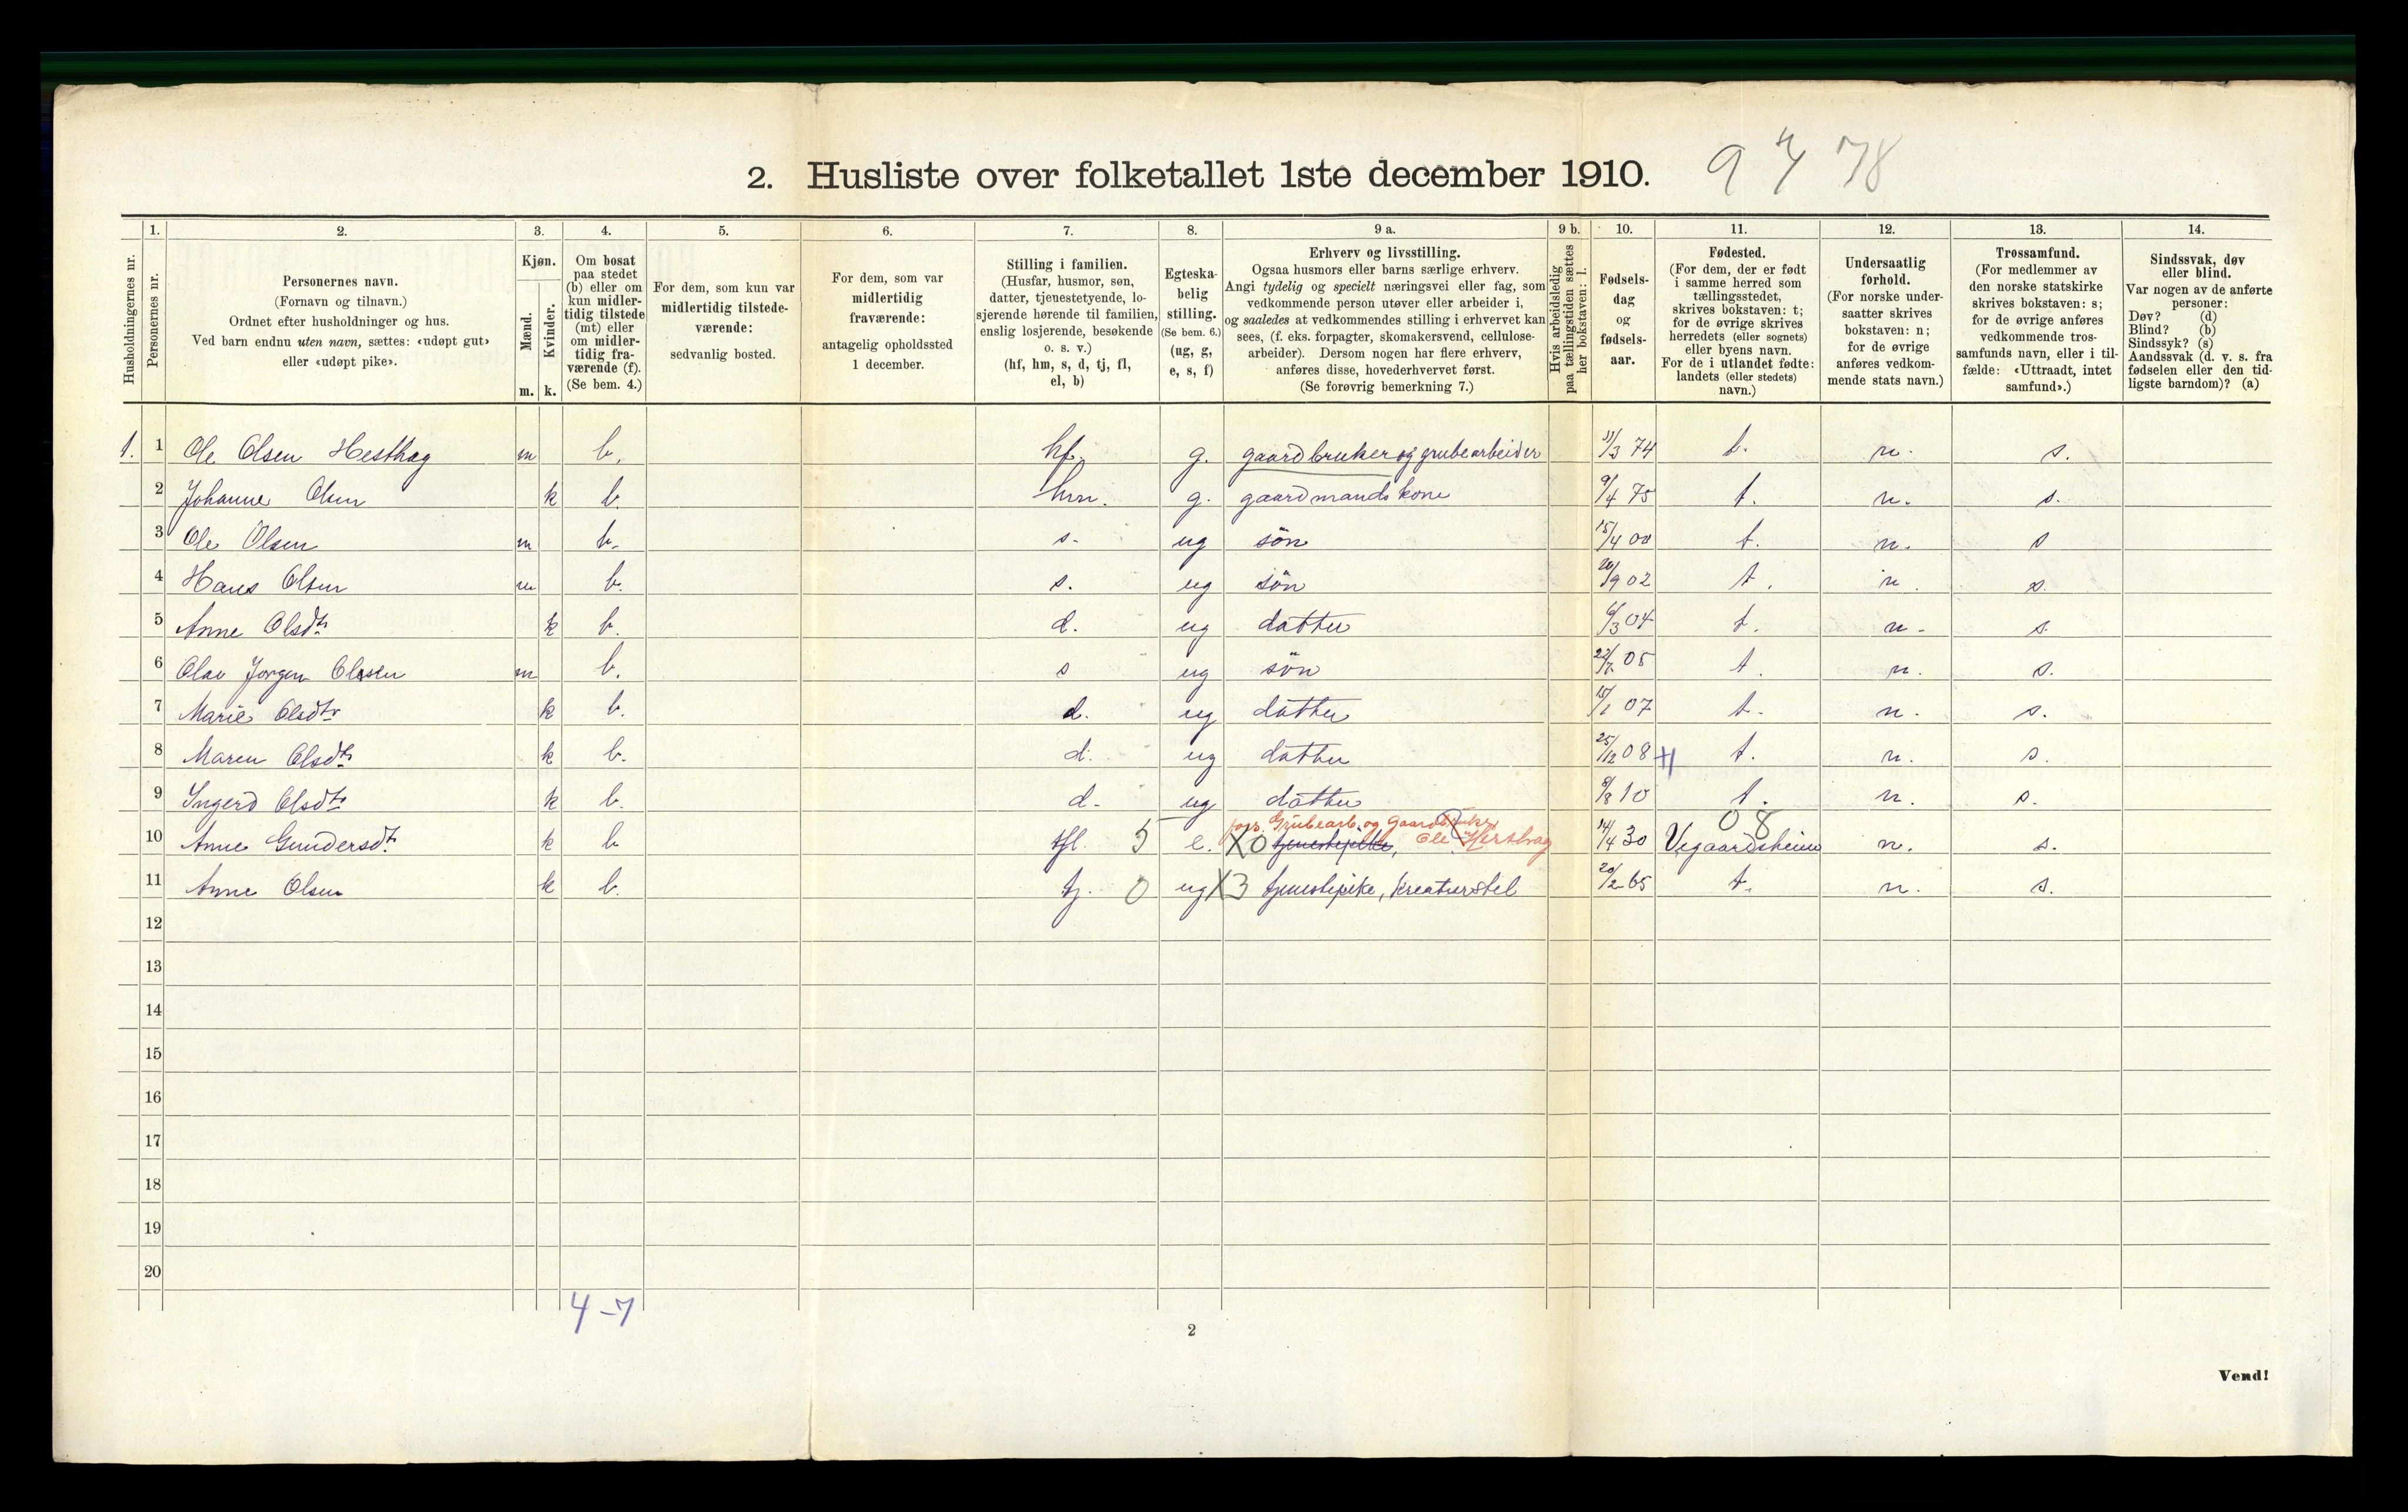 2. Husliste over folketallet 1ste december 1910. 9 4 78
Husholdningernes nr.
1. Personernes nr.
2. Personernes navn. (Fornavn og tilnavn.) Ordnet efter husholdninger og hus. Ved barn endnu uten navn, sættes: «udøpt gut» eller «udøpt pike».
3. Kjøn. Mænd. m. Kvinder. k.
4. Om bosat paa stedet (b) eller om kun midlertidig tilstede (mt) eller om midlertidig fraværende (f). (Se bem. 4.)
5. For dem, som kun var midlertidig tilstedeværende: sedvanlig bosted.
6. For dem, som var midlertidig fraværende: antagelig opholdssted 1 december.
7. Stilling i familien. (Husfar, husmor, søn, datter, tjenestetyende, losjerende hørende til familien, enslig losjerende, besøkende o. s. v.) (hf, hm, s, d, tj, fl, el, b)
8. Egteskabelig stilling. (Se bem. 6.) (ug, g, e, s, f)
9 a. Erhverv og livsstilling. Ogsaa husmors eller barns særlige erhverv. Angi tydelig og specielt næringsvei eller fag, som vedkommende person utøver eller arbeider i, og saaledes at vedkommendes stilling i erhvervet kan sees, (f. eks. forpagter, skomakersvend, cellulosearbeider). Dersom nogen har flere erhverv, anføres disse, hovederhvervet først. (Se forøvrig bemerkning 7.)
9 b. Hvis arbeidsledig paa tællingstiden sættes her bokstaven: l.
10. Fødselsdag og fødselsaar.
11. Fødested. (For dem, der er født i samme herred som tællingsstedet, skrives bokstaven: t; for de øvrige skrives herredets (eller sognets) eller byens navn. For de i utlandet fødte: landets (eller stedets) navn.)
12. Undersaatlig forhold. (For norske undersaatter skrives bokstaven: n; for de øvrige anføres vedkommende stats navn.)
13. Trossamfund. (For medlemmer av den norske statskirke skrives bokstaven: s; for de øvrige anføres vedkommende trossamfunds navn, eller i tilfælde: «Uttraadt, intet samfund».)
14. Sindssvak, døv eller blind. Var nogen av de anførte personer: Døv? (d) Blind? (b) Sindssyk? (s) Aandssvak (d. v. s. fra fødselen eller den tidligste barndom)? (a)
1. 1 Ole Olsen Hesthag m b. hf. g. gaardbruker og grubearbeider 11/3 74 t. n. s.
2 Johanne Olsen k b. hm. g. gaardmandskone 9/4 75 t. n. s.
3 Ole Olsen m b. s. ug søn 15/4 00 t. n. s
4 Hans Olsen m b. s. ug søn 02 t. n. s.
5 Anne Olsdtr k b. d. ug datter 6/3 04 t. n. s.
6 Olav Jørgen Olsen m b. s ug søn 05 t. n. s.
7 Marie Olsdtr k b. d. ug datter 15/1 07 t. n. s.
8 Maren Olsdtr k b. d. ug datter 25/12 08 t. n. s.
9 Ingerd Olsdtr k b. d. ug datter 8/8 10 t. n. s.
fors. Grubearb. og Gaardbruker 08
10 Anne Gundersdtr k b 5 e. X0 tjenestepike, Ole Hersthag 14/4 30 Vegaardsheien n. s.
11 Anne Olsen k b. tj. 0 ug X3 tjenestepike, kreaturstel 20/2 65 t. n. s.
12
13
14
15
16
17
18
19
20
4-7
2
Vend!